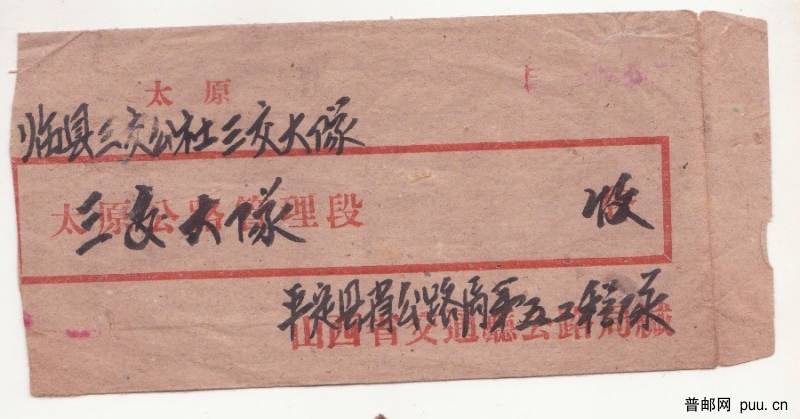 太原
临县三交公社三交大隊
太原公路管理段
三交大隊 收
平定县省公路局第五工程队
山西省交通廳公路局緘
普邮网 puu.cn